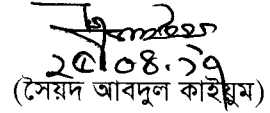 ২৫।০৪.১৭
(সৈয়দ আবদুল কাইয়ুম)